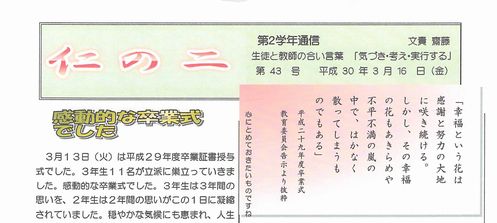 仁の二
第2学年通信
文責 齋藤
生徒と教師の合い言葉 「気づき・考え・実行する」
第 43 号 平成 30 年 3 月 16 日 (金)
感動的な卒業式
でした
3月13日(火)は平成29年度卒業証書授与
式でした。3年生11名が立派に巣立っていきま
した。感動的な卒業式でした。3年生は3年間の
思いを、2年生は2年間の思いがこの1日に凝縮
されていました。穏やかな気候にも恵まれ、人生
「幸福という花は
感謝と努力の大地
に咲き続ける。
しかし、その幸福
の花もあきらめや
不平不満の嵐の
中で、はかなく
散ってしまうも
のでもある」
平成二十九年度卒業式
教育委員会告示より抜粋
心にとめておきたいものですね